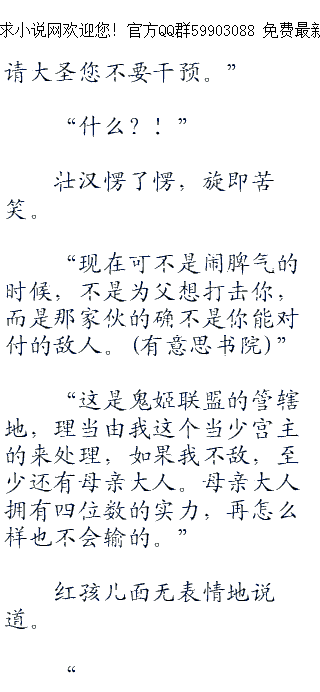 求小说网欢迎您！官方QQ群59903088 免费最新
请大圣您不要干预。”
“什么？！”
壮汉愣了愣，旋即苦
笑。
“现在可不是闹脾气的
时候，不是为父想打击你，
而是那家伙的确不是你能对
付的敌人。(有意思书院)”
“这是鬼姬联盟的管辖
地，理当由我这个当少宫主
的来处理，如果我不敌，至
少还有母亲大人。母亲大人
拥有四位数的实力，再怎么
样也不会输的。”
红孩儿面无表情地说
道。
“